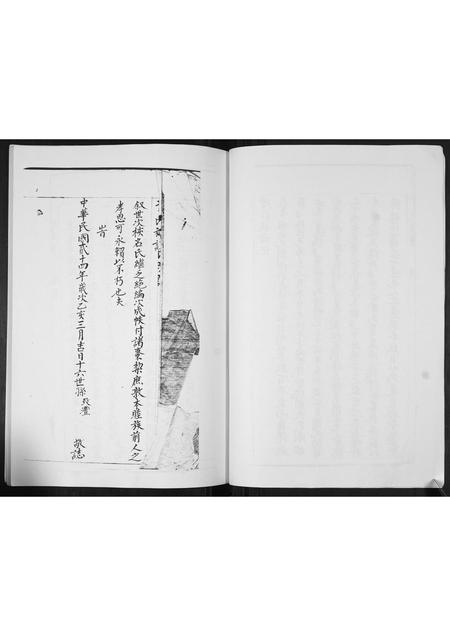 叙世次核名氏継之絕編次成帙付諸棗棃庶敦本睦族前人之
孝思可永賴以不朽也夫
峕
中華民國貳十四年歲次乙亥三月吉日十六世孫 敬誌